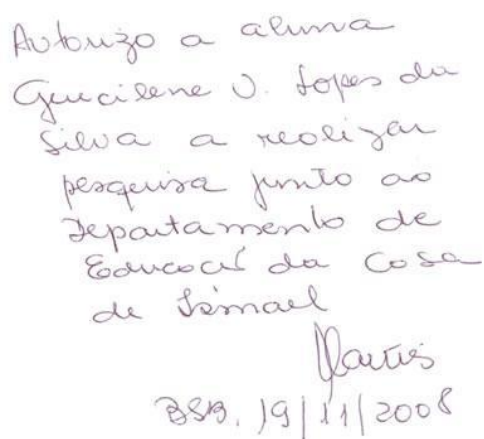 Autorizo a aluna
Geucilene V. Lopes da
Silva a realizar
pesquisa junto ao
Departamento de
Educaci da Casa
de Ismael
BSB, 19/11/2008